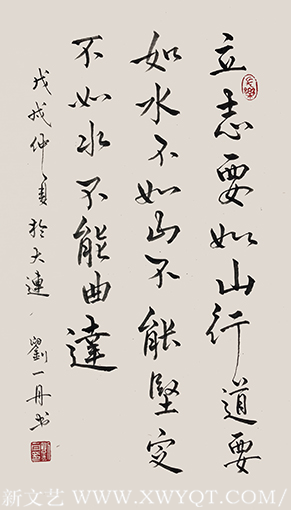 立志要如山行道要
如水不如山不能坚定
不如水不能曲達
戊戌仲夏於大連
劉一丹书
新文艺 WWW.XWYQT.COM/